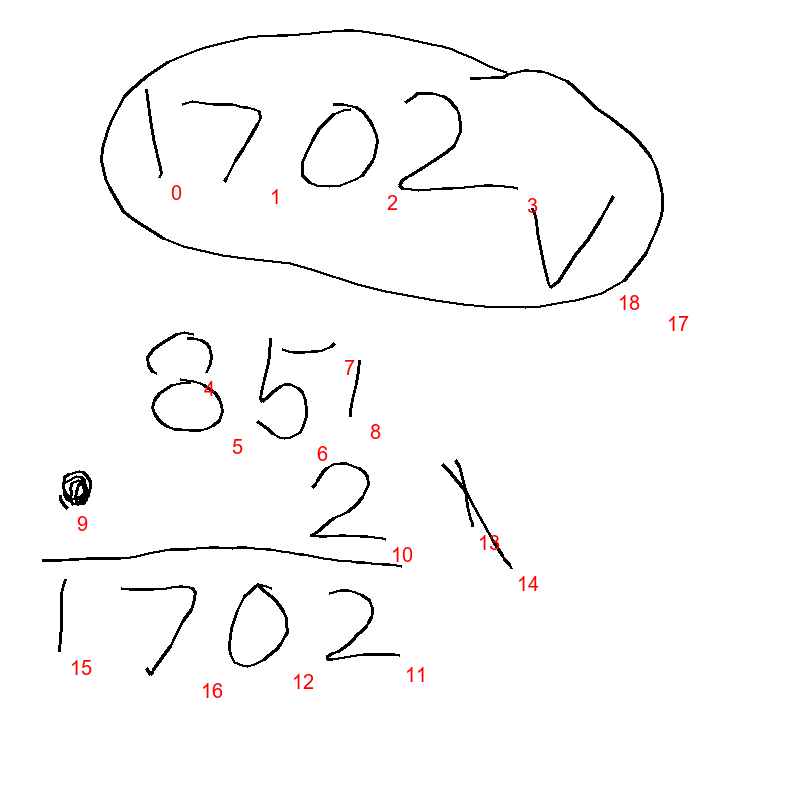 1702 √
0 1 2 3
18
17
851
4 5 6 7 8
2 x
9 10 13 14
1702
15 16 12 11